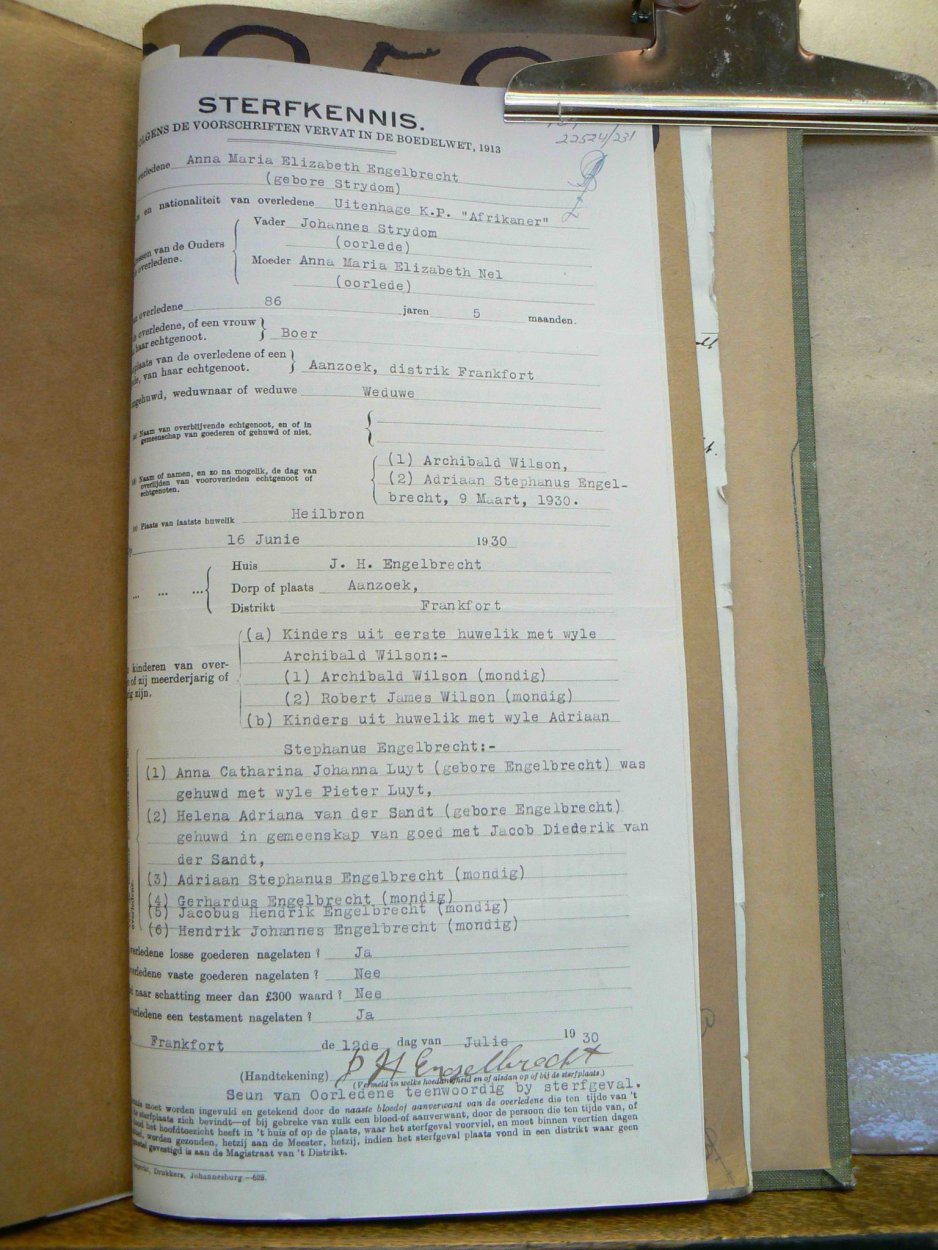 STERFKENNIS.
LGENS DE VOORSCHRIFTEN VERVAT IN DE BOEDELWET, 1913
22524/231
verledene Anna Maria Elizabeth Engelbrecht
(gebore Strydom)
en nationaliteit van overledene Uitenhage K.P. "Afrikaner"
Vader Johannes Strydom
(oorlede)
van de Ouders
overledene.
Moeder Anna Maria Elizabeth Nel
(oorlede)
overledene 86 jaren 5 maanden.
overledene, of een vrouw
haar echtgenoot. Boer
plaats van de overledene of een
van haar echtgenoot. Aanzoek, distrik Frankfort
ngehuwd, weduwnaar of weduwe Weduwe
Naam van overblijvende echtgenoot, en of in
gemeenschap van goederen of gehuwd of niet.
(1) Archibald Wilson,
Naam of namen, en zo na mogelik, de dag van
overlijden van vooroverleden echtgenoot of
echtgenoten.
(2) Adriaan Stephanus Engel-
brecht, 9 Maart, 1930.
Plaats van laatste huwelik Heilbron
16 Junie 1930
Huis J. H. Engelbrecht
Dorp of plaats Aanzoek,
Distrikt Frankfort
(a) Kinders uit eerste huwelik met wyle
Archibald Wilson:-
kinderen van over-
of zij meerderjarig of
zijn.
(1) Archibald Wilson (mondig)
(2) Robert James Wilson (mondig)
(b) Kinders uit huwelik met wyle Adriaan
Stephanus Engelbrecht:-
(1) Anna Catharina Johanna Luyt (gebore Engelbrecht) was
gehuwd met wyle Pieter Luyt,
(2) Helena Adriana van der Sandt (gebore Engelbrecht)
gehuwd in gemeenskap van goed met Jacob Diederik van
der Sandt,
(3) Adriaan Stephanus Engelbrecht (mondig)
(4) Gerhardus Engelbrecht (mondig)
(5) Jacobus Hendrik Engelbrecht (mondig)
(6) Hendrik Johannes Engelbrecht (mondig)
overledene losse goederen nagelaten? Ja
verledene vaste goederen nagelaten? Nee
naar schatting meer dan £300 waard? Nee
verledene een testament nagelaten? Ja
Frankfort de 12de dag van Julie 1930
(Handtekening) J H Engelbrecht
(Vermeld in welke hoedanigheid en of alsdan op of bij de sterfplaats.)
Seun van Oorledene teenwoordig by sterfgeval.
moet worden ingevuld en getekend door de naaste bloedof aanverwant van de overledene die ten tijde van 't
sterfplaats zich bevindt—of bij gebreke van zulk een bloed-of aanverwant, door de persoon die ten tijde van, of
het hoofdtoezicht heeft in 't huis of op de plaats, waar het sterfgeval voorviel, en moet binnen veertien dagen
worden gezonden, hetzij aan de Meester, hetzij, indien het sterfgeval plaats vond in een distrikt waar geen
gevestigd is aan de Magistraat van 't Distrikt.
Drukkers, Johannesburg.—628.